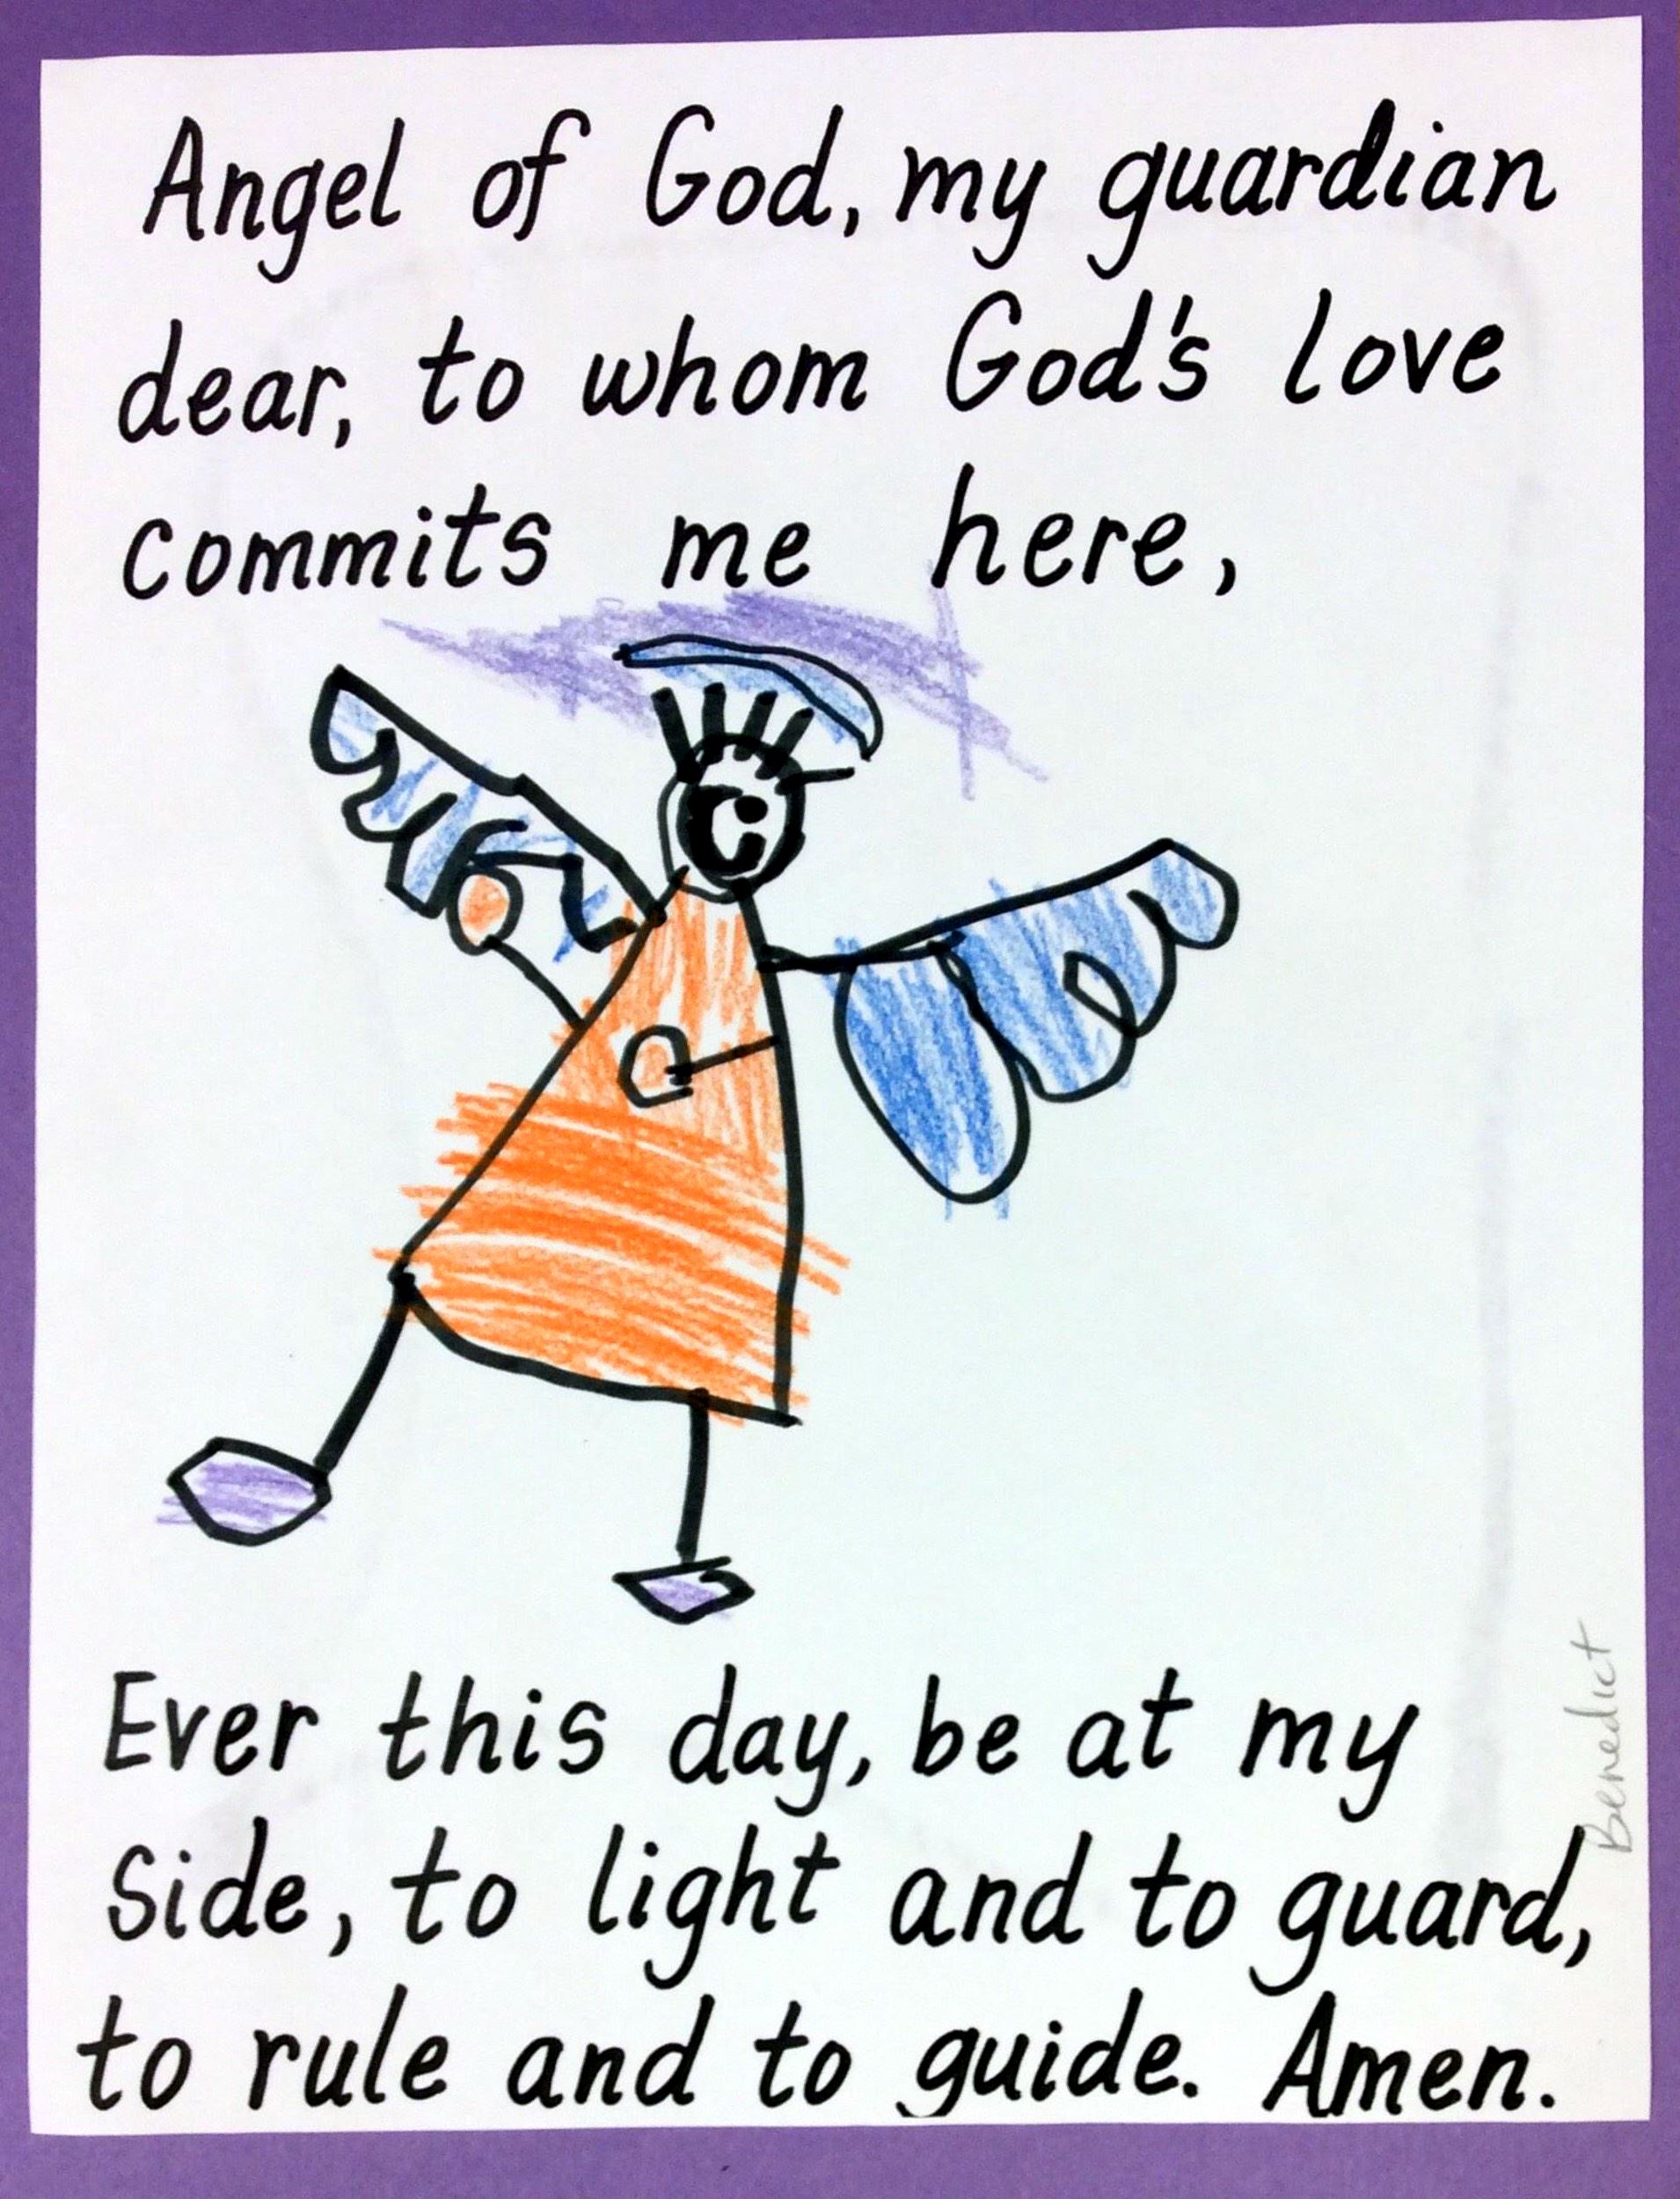 Angel of God, my guardian
dear, to whom God's love
commits me here,
Ever this day, be at my
Side, to light and to guard,
to rule and to guide. Amen.
Benedict